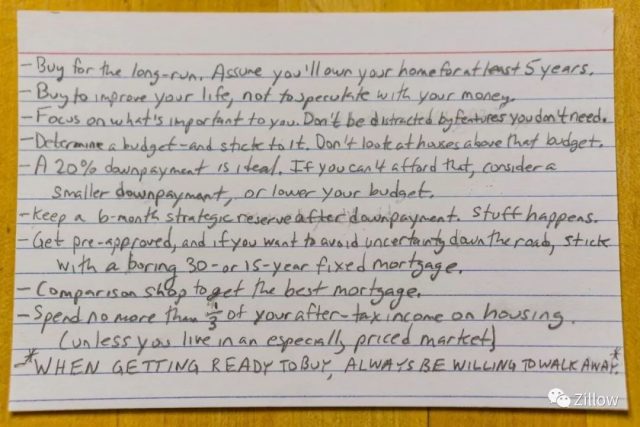 - Buy for the long-run. Assume you'll own your home for at least 5 years.
- Buy to improve your life, not to speculate with your money.
- Focus on what's important to you. Don't be distracted by features you don't need.
- Determine a budget-and stick to it. Don't look at houses above that budget.
- A 20% downpayment is ideal. If you can't afford that, consider a
smaller downpayment, or lower your budget.
- Keep a 6-month strategic reserve after downpayment. Stuff happens.
- Get pre-approved, and if you want to avoid uncertainty down the road, stick
with a boring 30-or 15-year fixed mortgage.
- Comparison shop to get the best mortgage.
- Spend no more than 1/3 of your after-tax income on housing.
(unless you live in an especially priced market)
*WHEN GETTING READY TO BUY, ALWAYS BE WILLING TO WALK AWAY.*
Zillow